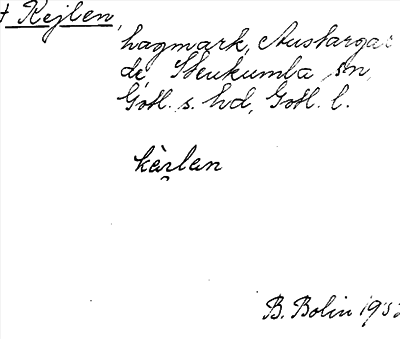 † Kejlen,
hagmark, Austargar
de, Stenkumla sn,
Gotl. s. hd, Gotl. l.
kèr̮lan
B. Bolin 195